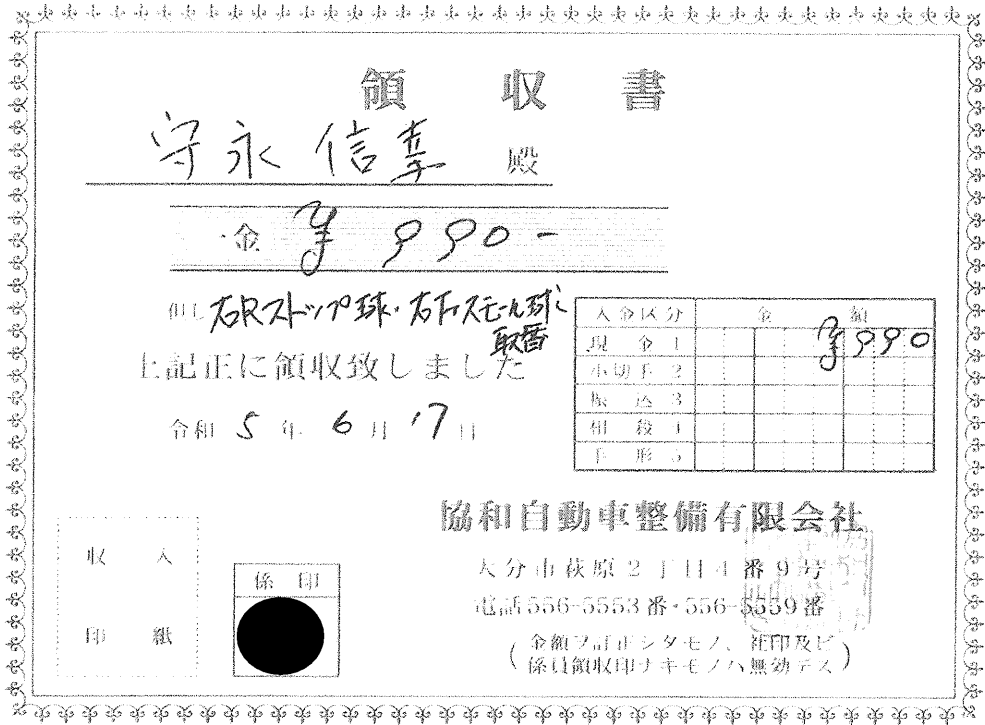 領収書
守永信幸 殿
金 ¥990-
但し 右Rストップ球・右Frスモール球
取替
上記正に領収致しました
令和5年6月17日
入金区分 金額
現金1 ¥990
小切手2
振込3
相殺4
手形5
協和自動車整備有限会社
大分市萩原2丁目4番9号
電話556-5553番・556-5559番
(金額ヲ訂正シタモノ、社印及ビ
係員領収印ナキモノハ無効デス)
収入
印紙
係印